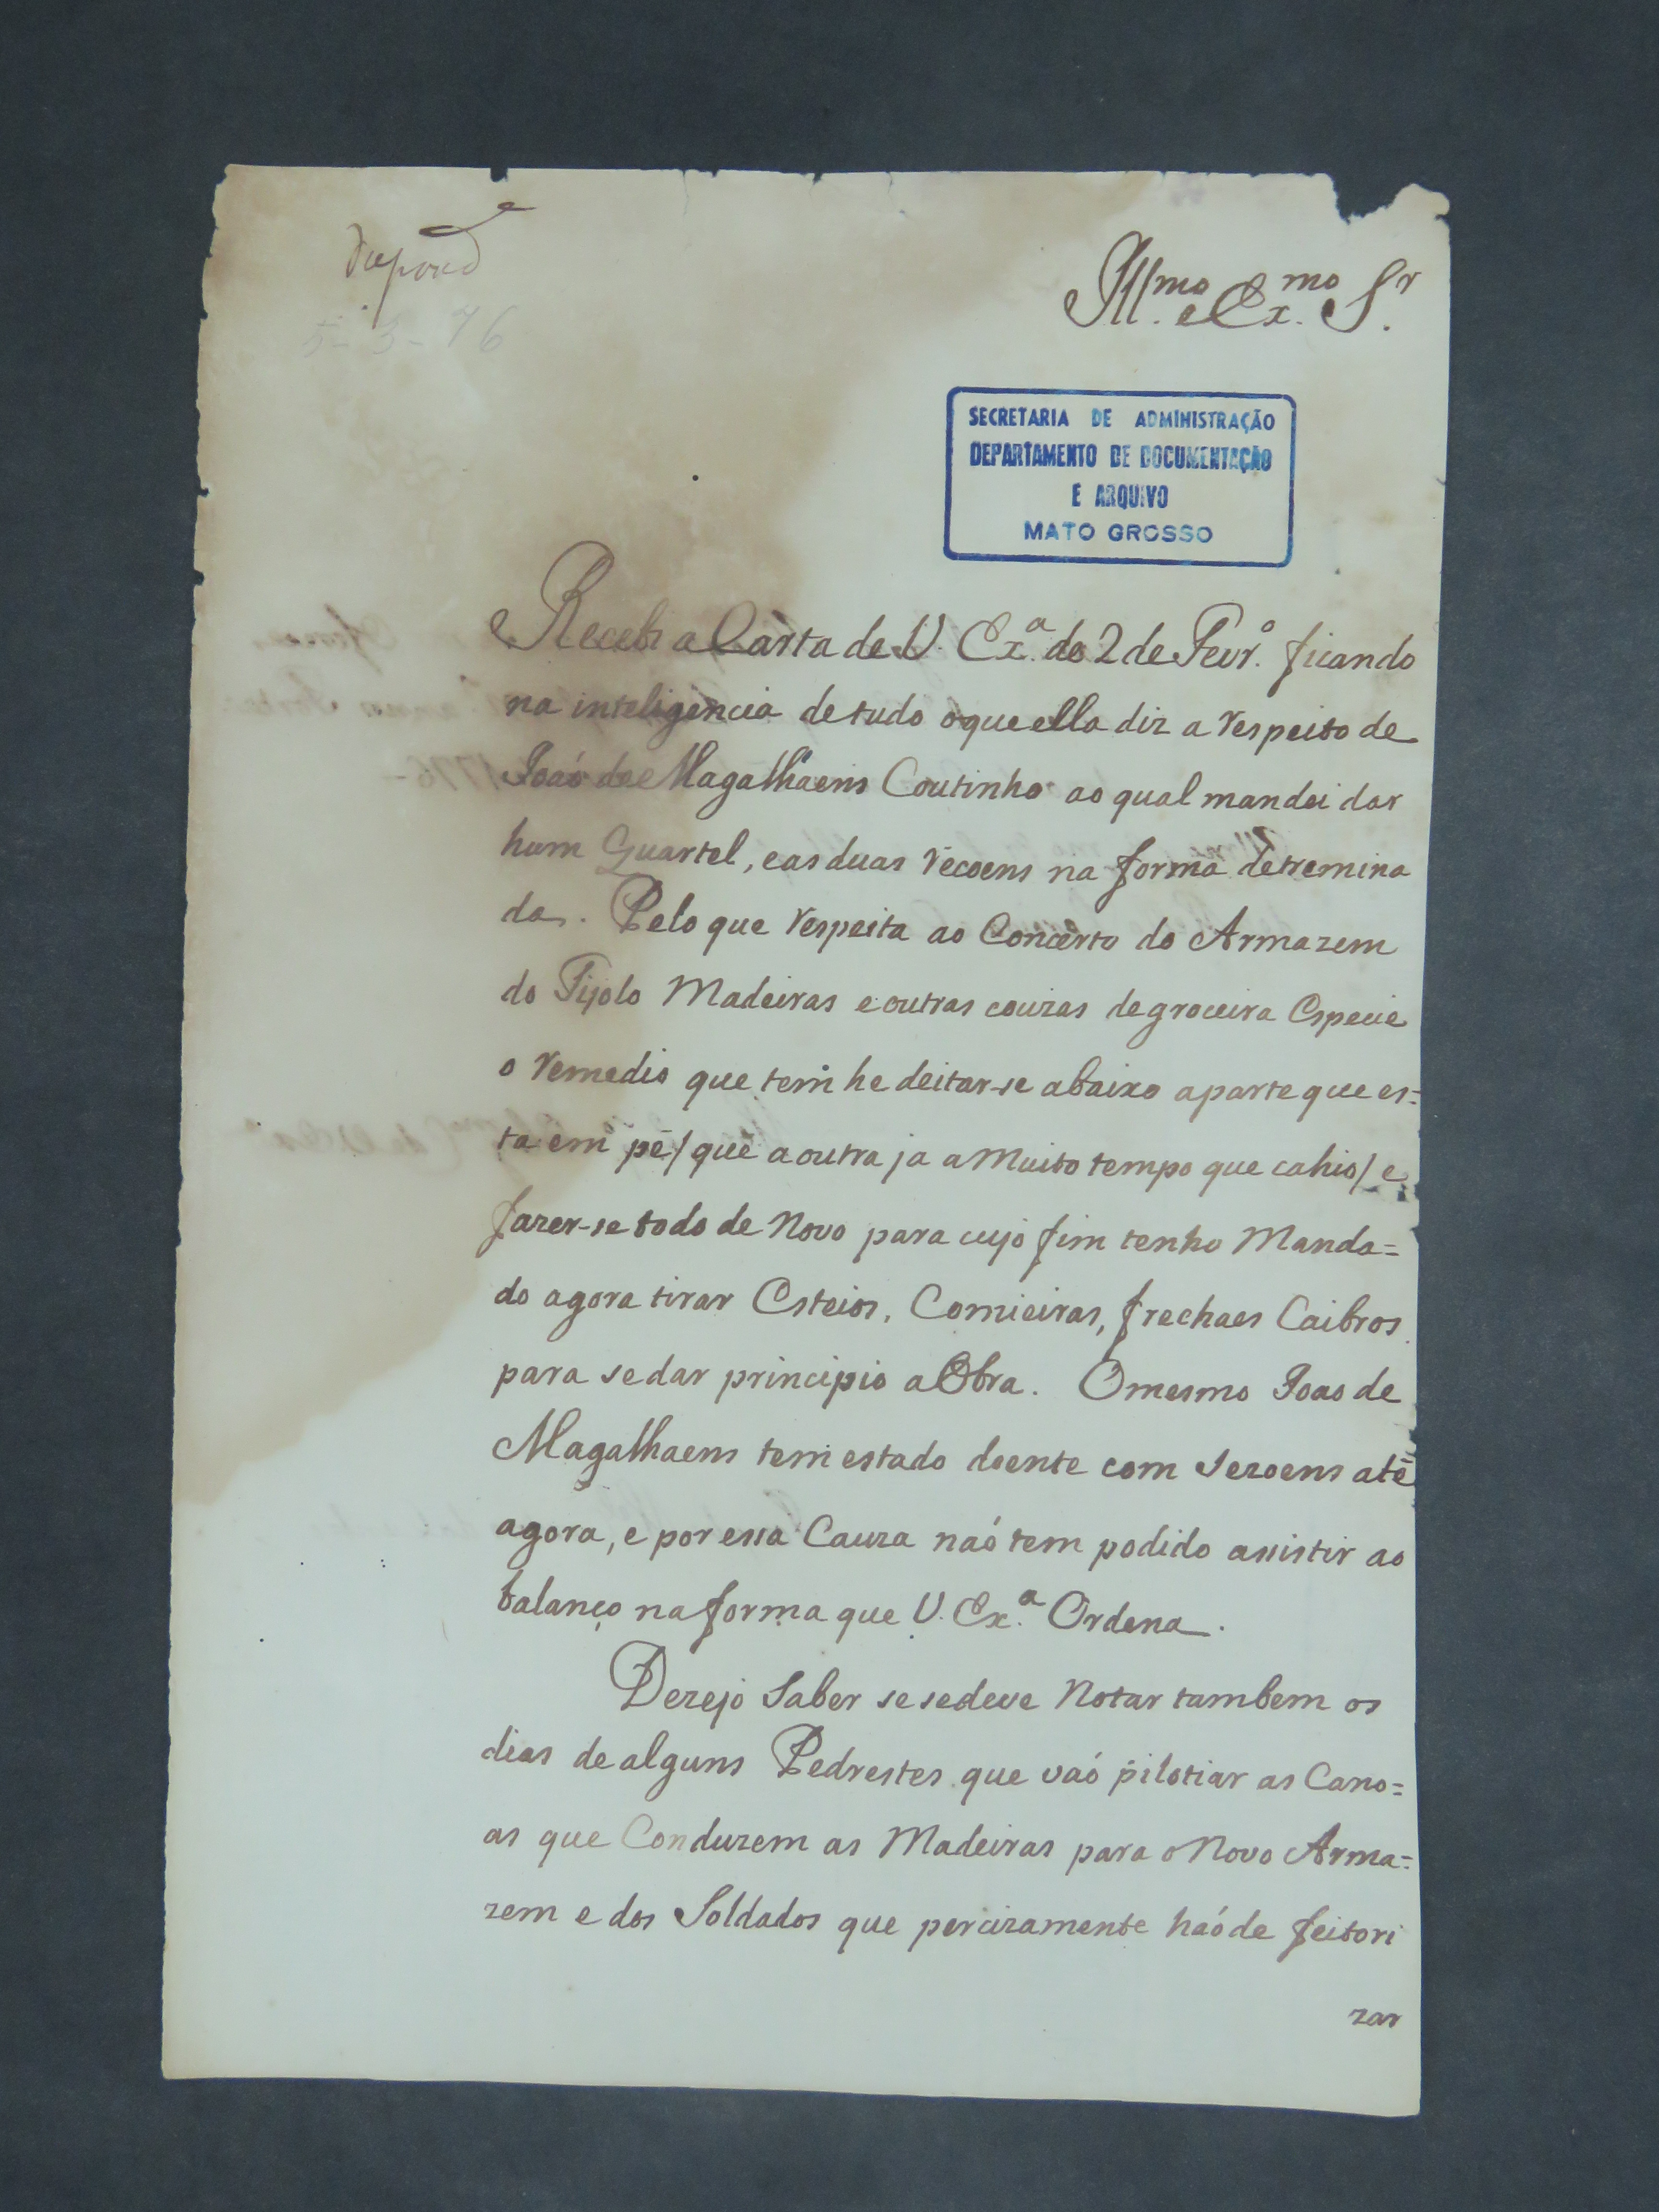 Ill.mo e Ex.mo S.r
5-3-76
SECRETARIA DE ADMINISTRAÇÃO
DEPARTAMENTO DE DOCUMENTAÇÃO
E ARQUIVO
MATO GROSSO
Recebi a Carta de V. Ex.a de 2 de Fevr.o ficando
na inteligencia detudo oque ella diz a respeito de
Joaó de Magalhaens Coutinho ao qual mandei dar
hum Quartel, eas duas recoens na forma detremina
da. Pelo que respeita ao Concerto do Armazem
do Tijolo Madeiras e outras couzas degroceira Especie
o remedio que tem he deitar-se abaixo aparte que es=
ta em pé/ que a outra ja a Muito tempo que cahio/ e
fazer-se todo de Novo para cujo fim tenho Manda=
do agora tirar Esteios, Comieiras, frechaes Caibros
para sedar principio a Obra. O mesmo Joao de
Magalhaens tem estado doente com Sezoens até
agora, e por essa Cauza naó tem podido assistir ao
balanço na forma que V. Ex.a Ordena.
Dezejo Saber se sedeve Notar tambem os
dias de alguns Pedrestes que vaó pilotiar as Cano=
as que Conduzem as Madeiras para o Novo Arma=
zem e dos Soldados que percizamente haóde feitori
zar